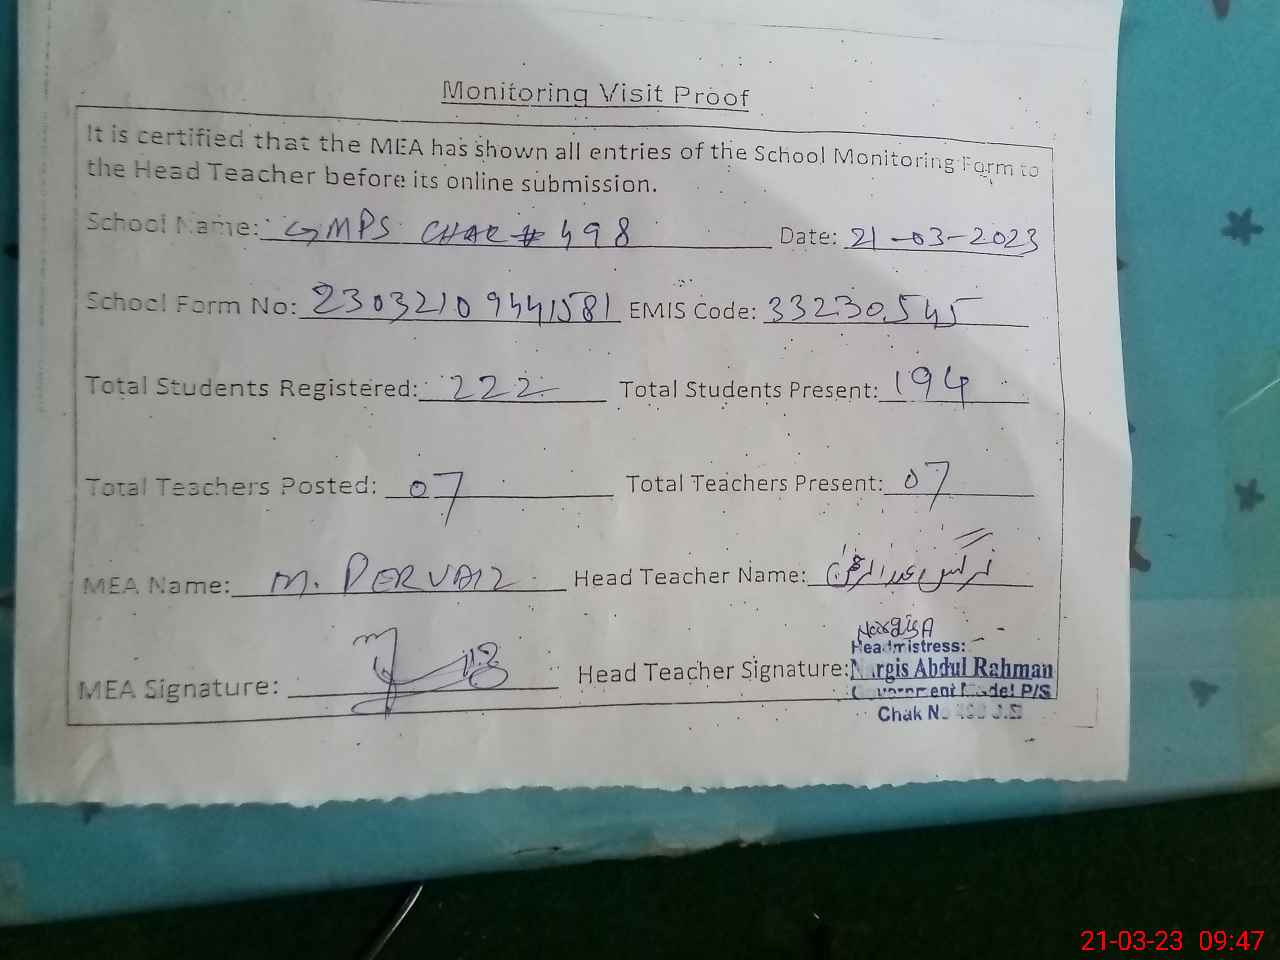 Monitoring Visit Proof
It is certified that the MEA has shown all entries of the School Monitoring Form to
the Head Teacher before its online submission.
School Name: GMPS CHAK # 498 Date: 21-03-2023
School Form No: 23032109441581 EMIS Code: 33230545
Total Students Registered: 222 Total Students Present: 194
Total Teachers Posted: 07 Total Teachers Present: 07
MEA Name: M. PERVAIZ Head Teacher Name: نرگس عبدالرحمن
NargisA
Headmistress:
MEA Signature: Head Teacher Signature: Nargis Abdul Rahman
Government Model P/S
Chak No 498 J.B
21-03-23 09:47